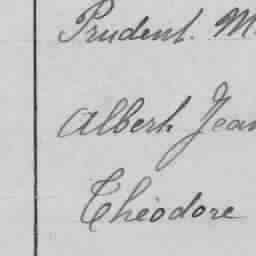 Prudent. M
Albert Jean
Théodore